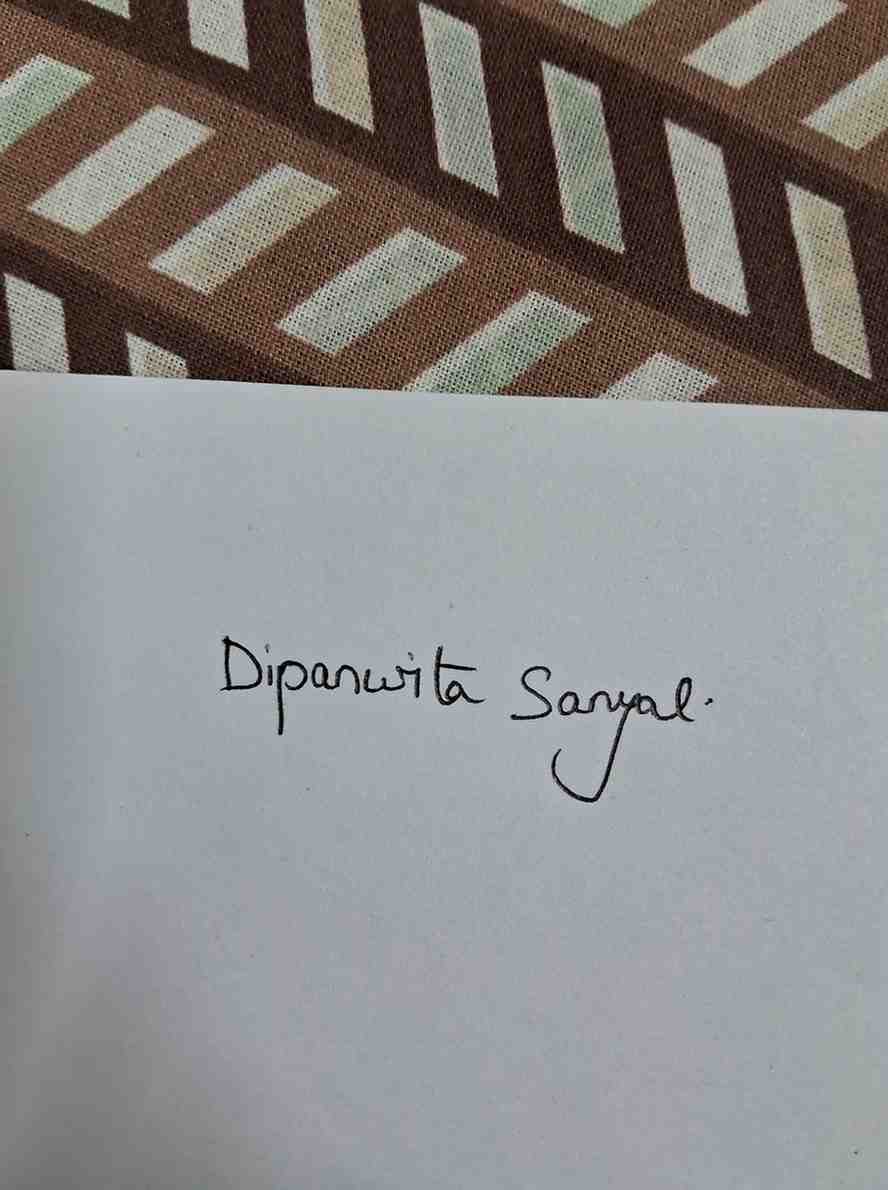 Dipanwita Sanyal.